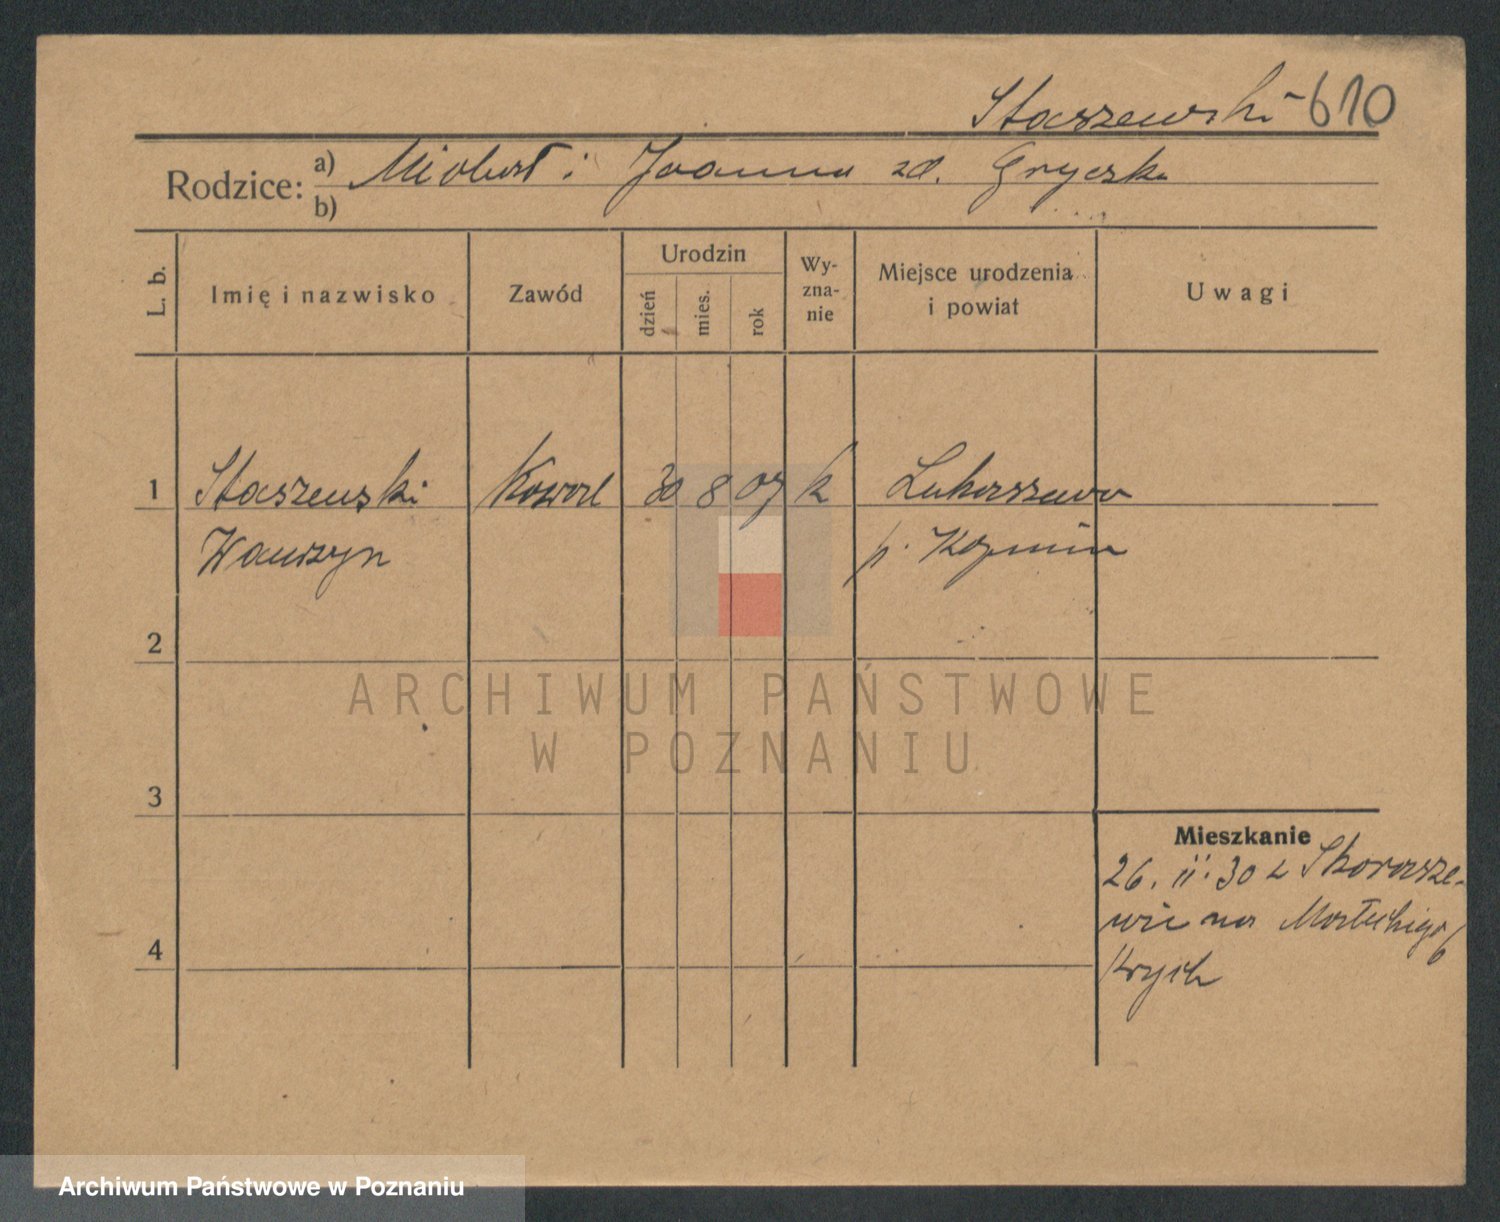 Staszewski 610
Rodzice: a) Michał i Joanna zd.
b)
L. b.
Imię i nazwisko
Zawód
Urodzin
dzień
mies.
rok
Wy-
zna-
nie
Miejsce urodzenia
i powiat
Uwagi
1 Staszewski Kowal 30 8 07 k Lukaszewo
Wawrzyn p. Kozmin
2
3
4
Mieszkanie
26. II. 30 z Skorasze-
wic na 6
ARCHIWUM PAŃSTWOWE
W POZNANIU
Archiwum Państwowe w Poznaniu